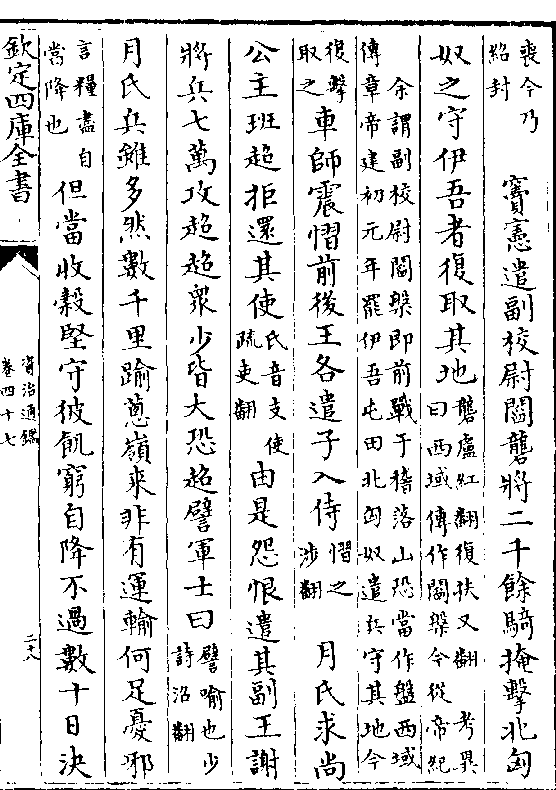 喪今乃紹封 竇憲遣副校尉閻礱將二千餘騎掩擊北匈
奴之守伊吾者復取其地 礱盧紅翻復扶又翻考異曰西域傳作閻槃今從帝紀
余謂副校尉閻槃即前戰于稽落山恐當作盤西域傳章帝建初元年罷伊吾屯田北匈奴遣兵守其地今
復擊取之 車師震慴前後王各遣子入侍 慴之涉翻 月氏求尚
公主班超拒還其使 氏音支使疏吏翻 由是怨恨遣其副王謝
將兵七萬攻超超衆少皆大恐超譬軍士曰 譬喻也少詩沼翻
月氏兵雖多然數千里踰蔥嶺來非有運輸何足憂邪
言糧盡自當降也 但當收穀堅守彼飢窮自降不過數十日決
欽定四庫全書
資治通鑑
卷四十七
二十八